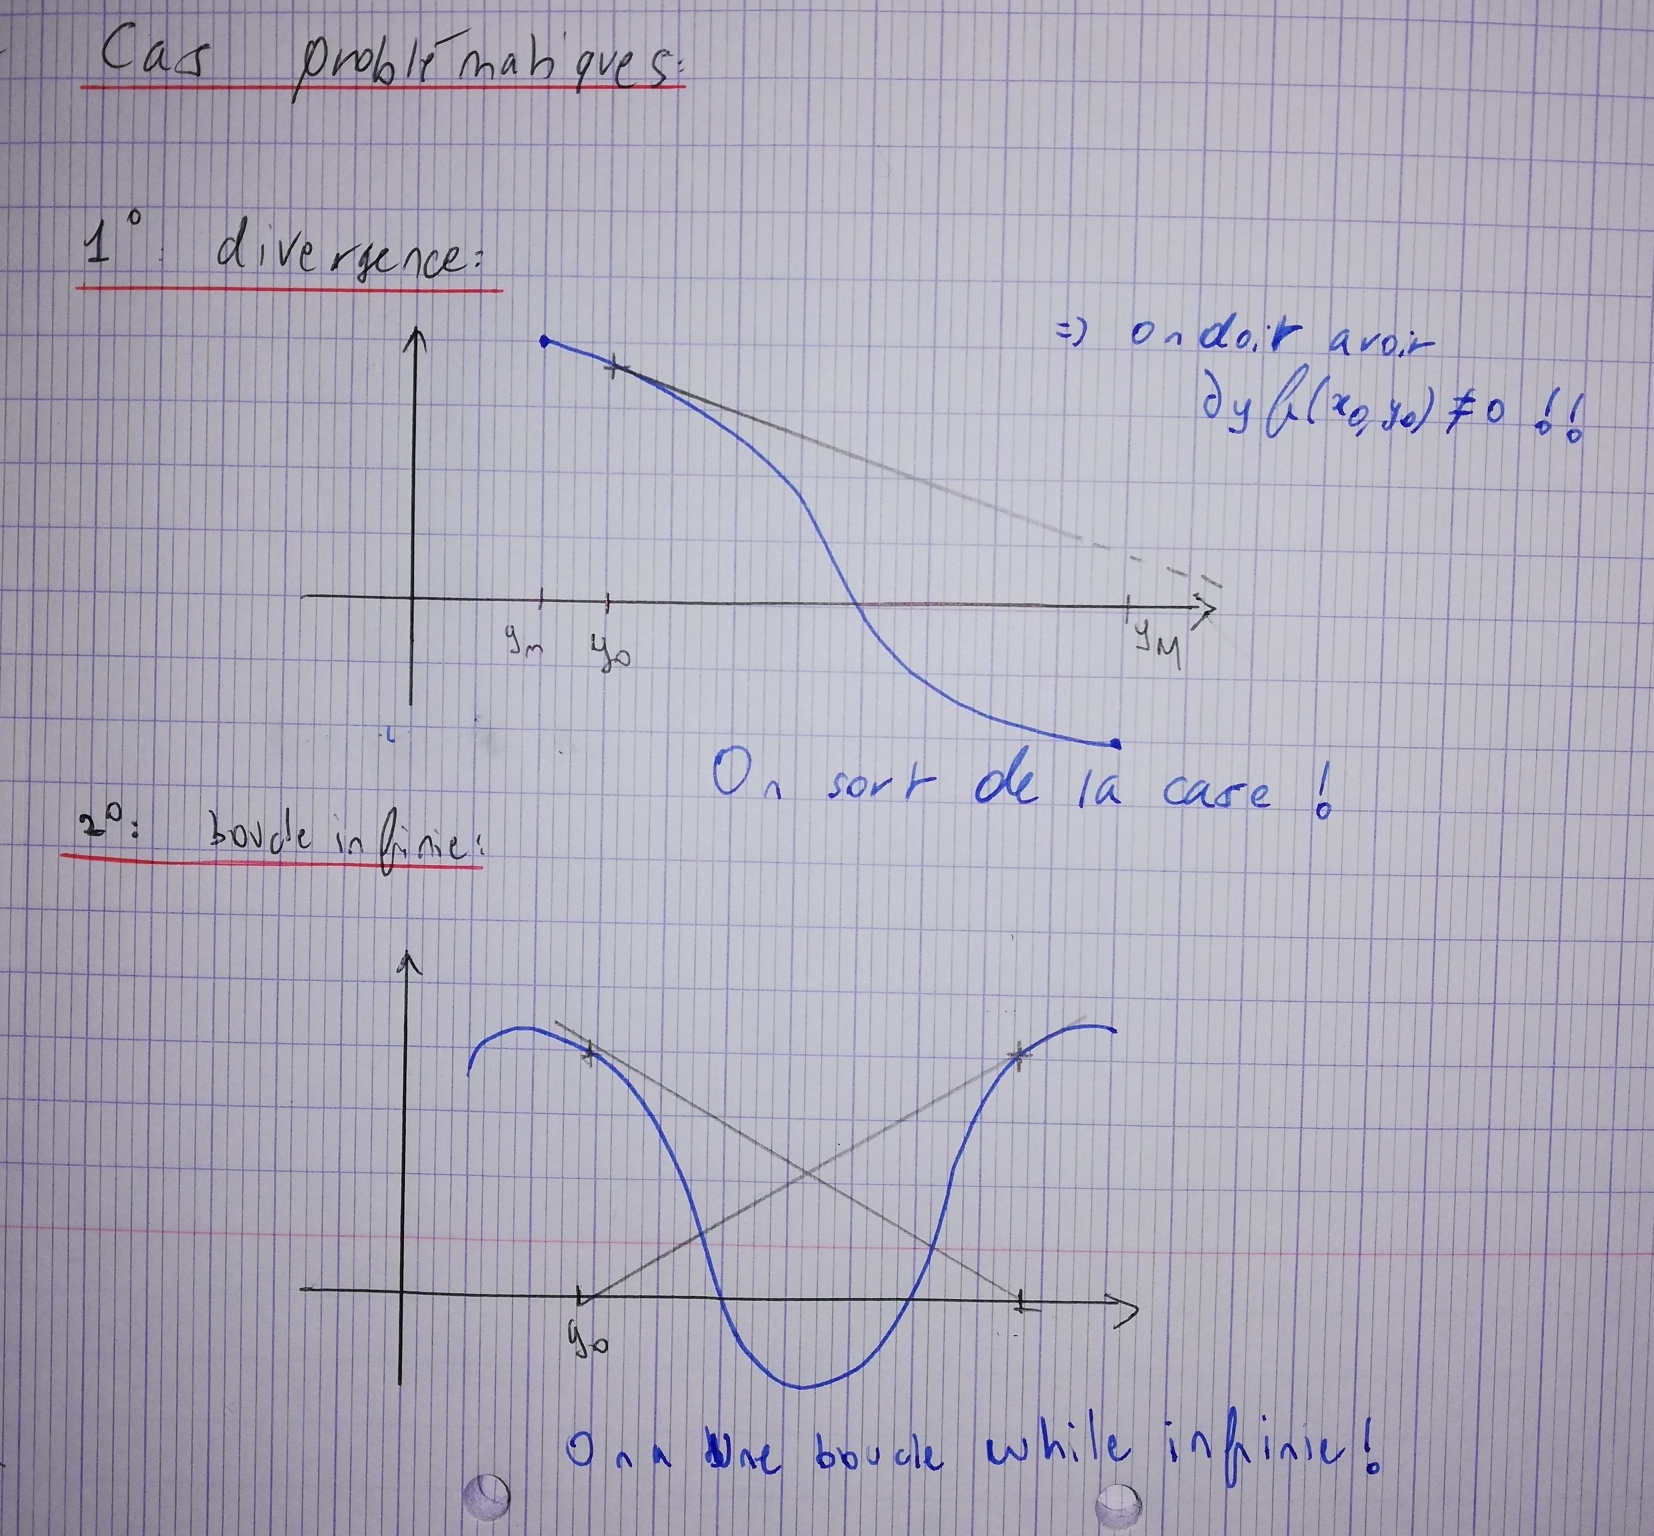 Cas problématiques:
1°: divergence:
=> On doit avoir
∂y f(x0, y0) ≠ 0 !!
ym y0 yM
On sort de la case !
2°: boucle infinie:
y0
On a une boucle while infinie !